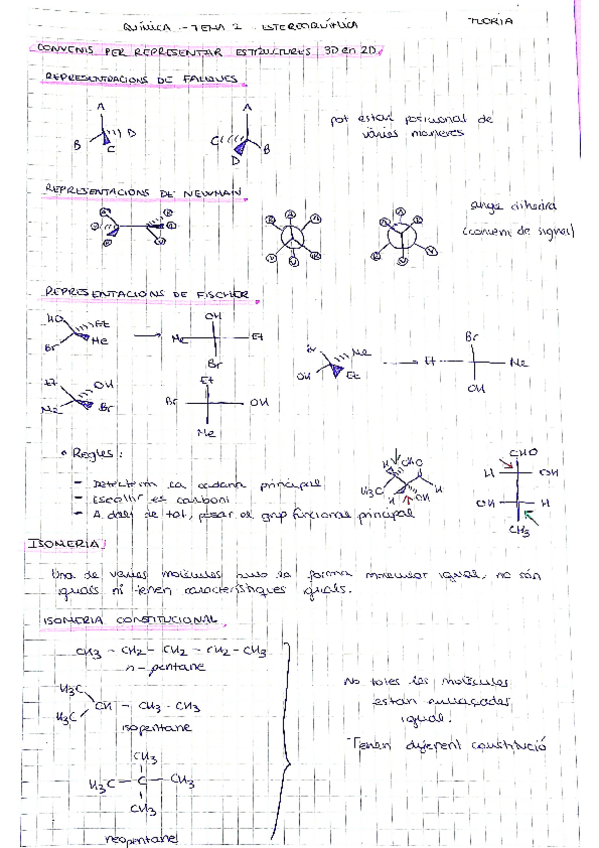 QUÍMICA - TEMA 2 ESTEREOQUÍMICA
TEORIA
CONVENIS PER REPRESENTAR ESTRUCTURES 3D en 2D.
REPRESENTACIONS DE FALQUES.
A
B
C
D
A
C
D
B
pot estar posicionat de
vàries maneres
REPRESENTACIONS DE NEWMAN.
(conveni de signes)
REPRESENTACIONS DE FISCHER
HO
Et
Me
Br
OH
Me
Et
Br
Br
Me
OH
Et
Br
Et
Me
OH
Et
OH
Me
Br
Et
Br
OH
Me
• Regles:
- Detectem la cadena principal
- Escollir es carboni
- A dalt de tot, posar el grup funcional principal
H
CHO
H3C
H
OH
H
CHO
H
OH
OH
H
CH3
ISOMERIA
Una de vàries molècules amb la forma molecular igual, no són
iguals ni tenen característiques iguals.
ISOMERIA CONSTITUCIONAL.
CH3 - CH2 - CH2 - CH2 - CH3
n-pentane
H3C
H3C
CH - CH2 - CH3
isopentane
CH3
H3C - C - CH3
CH3
neopentane
No totes les molècules
estan enllaçades
igual.
Tenen diferent constitució